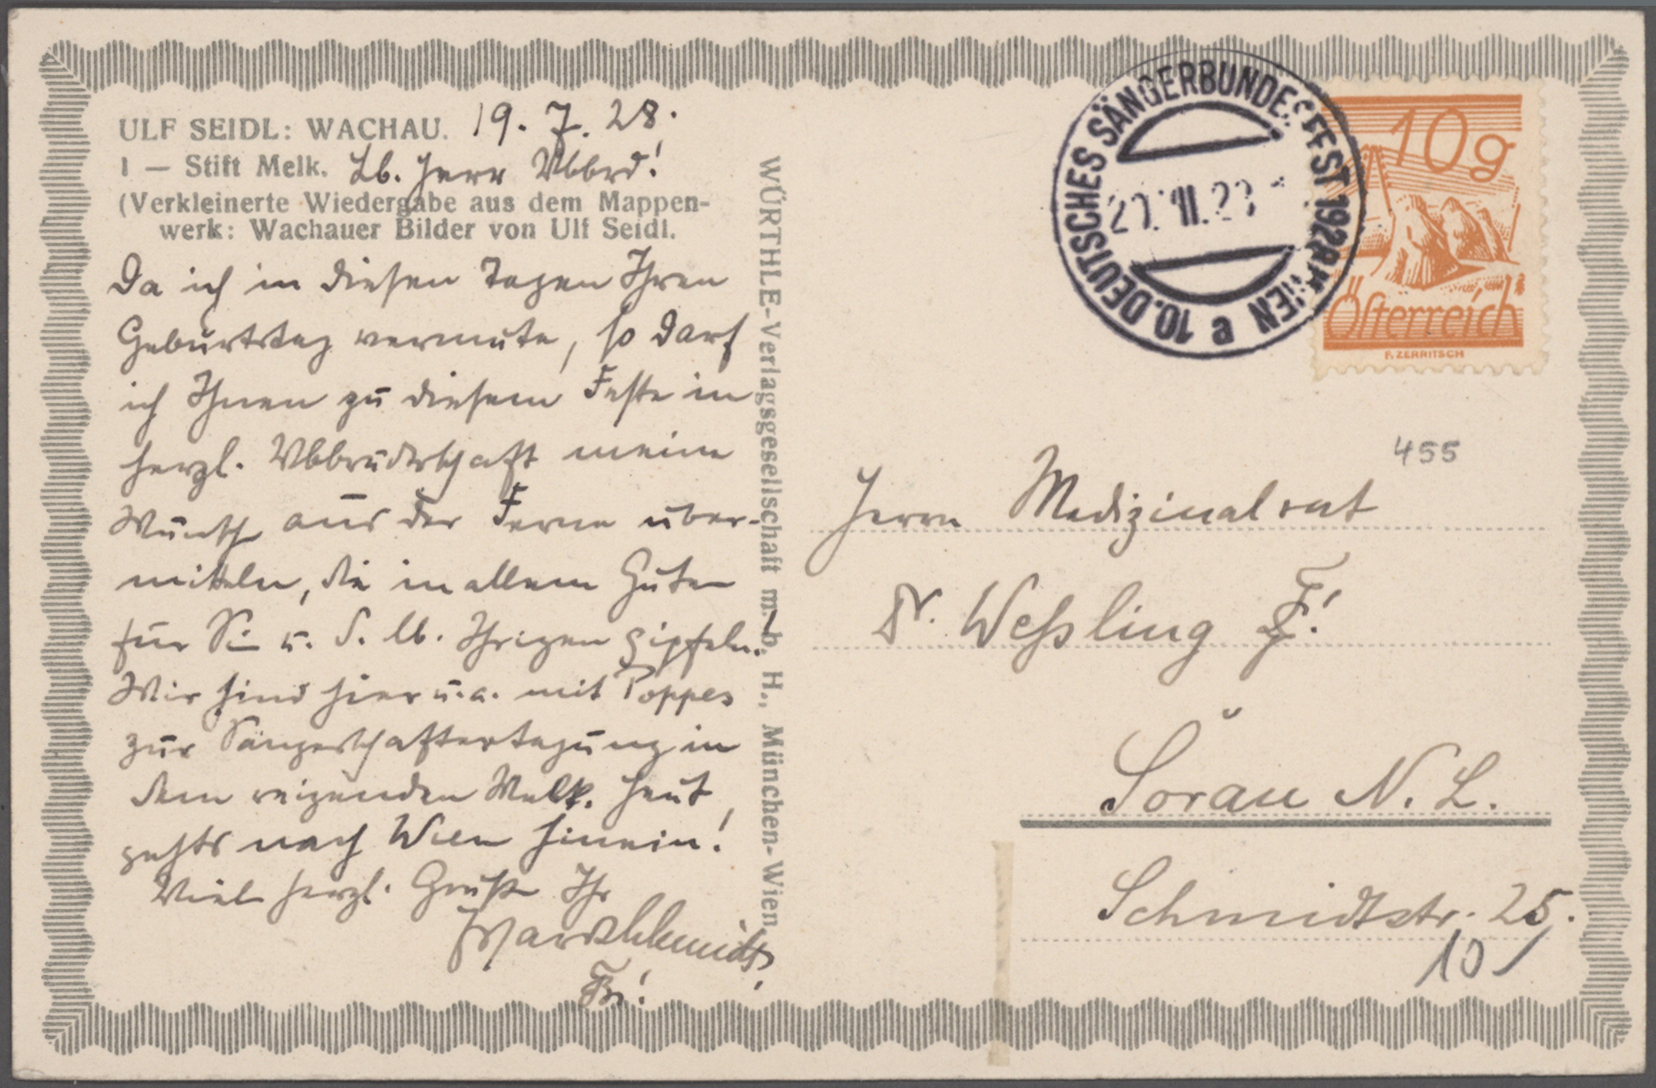 ULF SEIDL: WACHAU. 19. 7. 28.
I — Stift Melk. Lb. Herr Vbbrd!
(Verkleinerte Wiedergabe aus dem Mappen-
werk: Wachauer Bilder von Ulf Seidl.
Da ich in diesen Tagen Ihren
Geburtstag vermute, so darf
ich Ihnen zu diesem Feste in
herzl. Vbbruderschaft meine
Wünsche aus der Ferne über-
mitteln, die in allem Guten
für Sie u. d. lb. Ihrigen gipfeln.
Wir sind hier u. a. mit Poppes
zur Sängerschaftertagung in
dem reizenden Melk. Heut
gehts nach Wien hinein!
Viele herzl. Grüße Ihr
WÜRTHLE-Verlagsgesellschaft m. b. H., München-Wien.
10. DEUTSCHES SÄNGERBUNDESFEST 1928 * WIEN e
10g
Österreich
F. ZERRITSCH
455
Herrn Medizinalrat
Dr. Weßling
Sorau N. L.
Schmidtstr. 25.
10